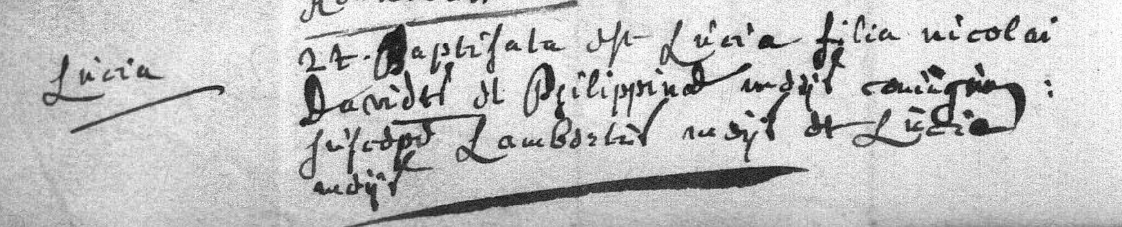 Lucia
27. Baptisata est Lucia filia nicolai
Davids et Philippinae meÿs coniugum :
suscepe Lambertus meÿs et Lucia
meÿs